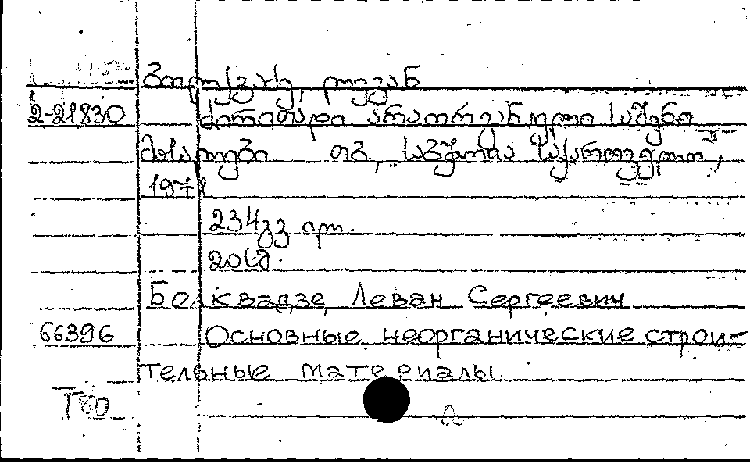 ბოლქვაძე, ლევან
2-21830 ძირითადი არაორგანული საშენი
მასალები თბ., საბჭოთა საქართველო,
197
234გვ ილ.
Болквадзе, Леван Сергеевич
66396 Основные неорганические строи-
тельные материалы